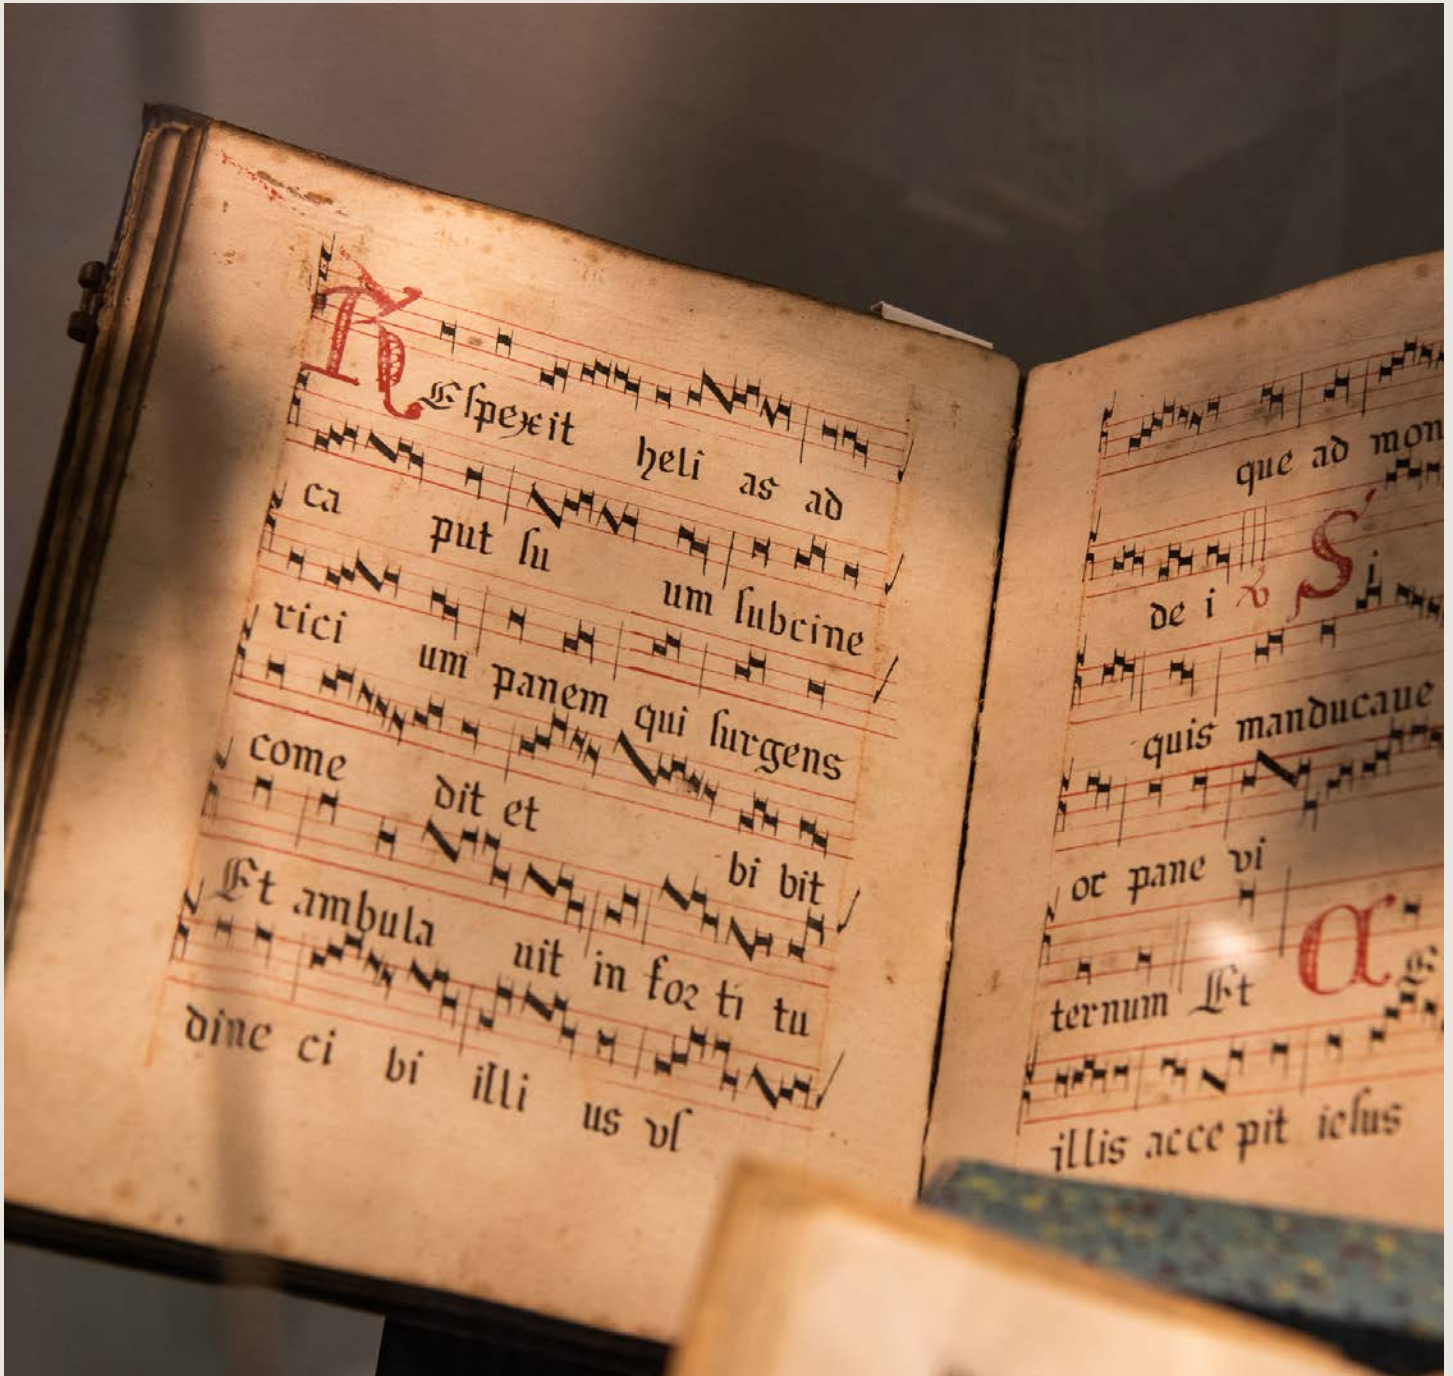 REſpexit heli as ad
ca put ſu um ſubcine
rici um panem qui ſurgens
come dit et bi bit
Et ambula uit in for ti tu
dine ci bi illi us vſ
que ad mon
de i ℣ Si
quis manducaue
oc pane vi
ternum Et A
illis acce pit ieſus